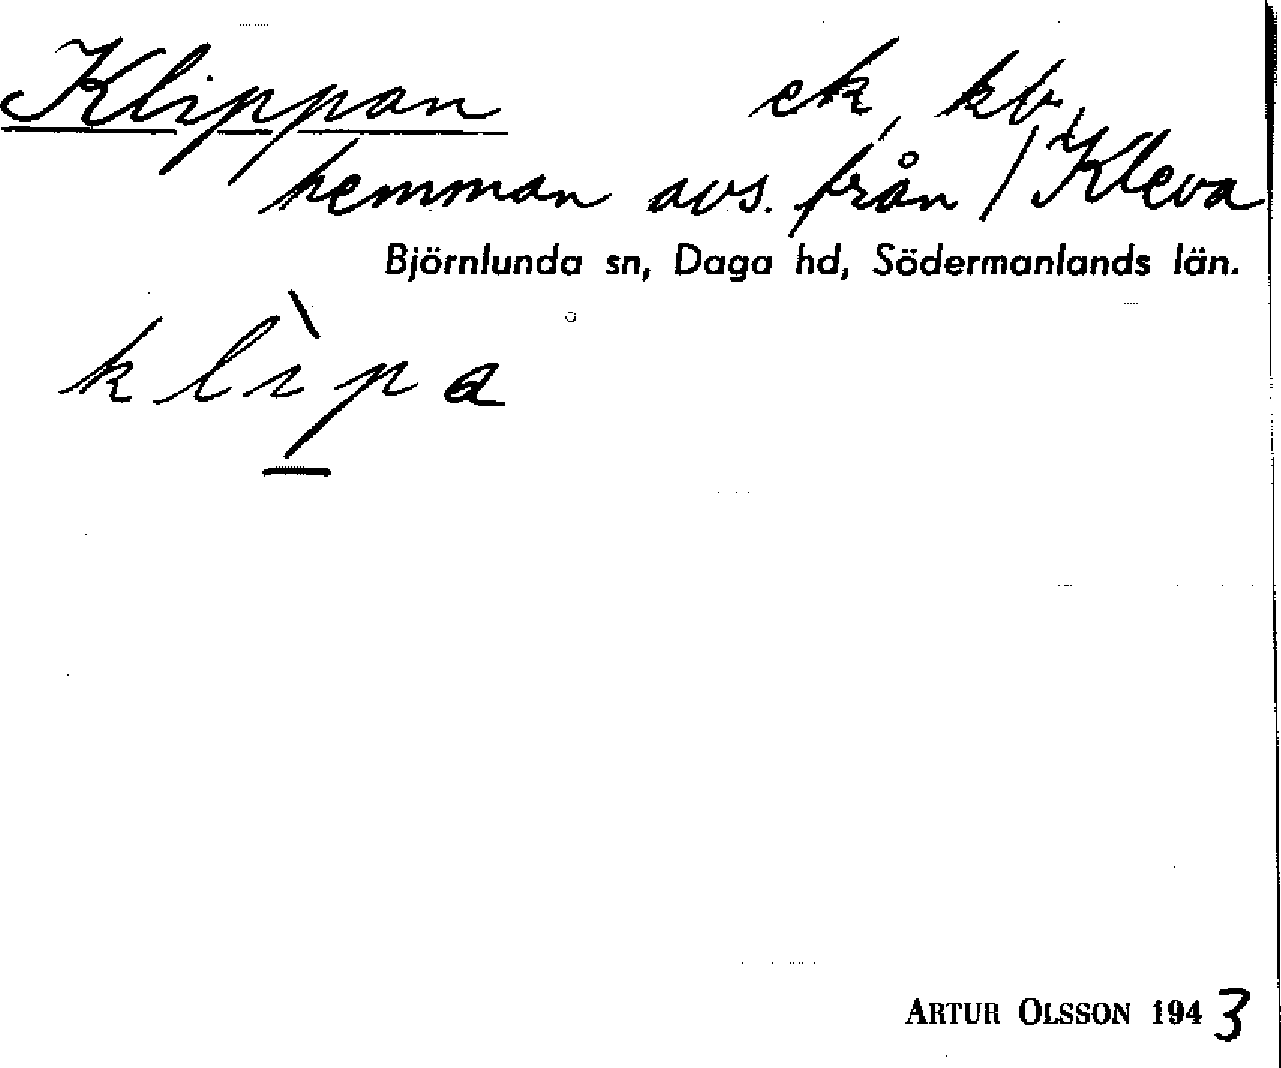 Klippan ek, kb,
hemman avs. från / Kleva
Björnlunda sn, Daga hd, Södermanlands län.
klìpa
ARTUR OLSSON 1943